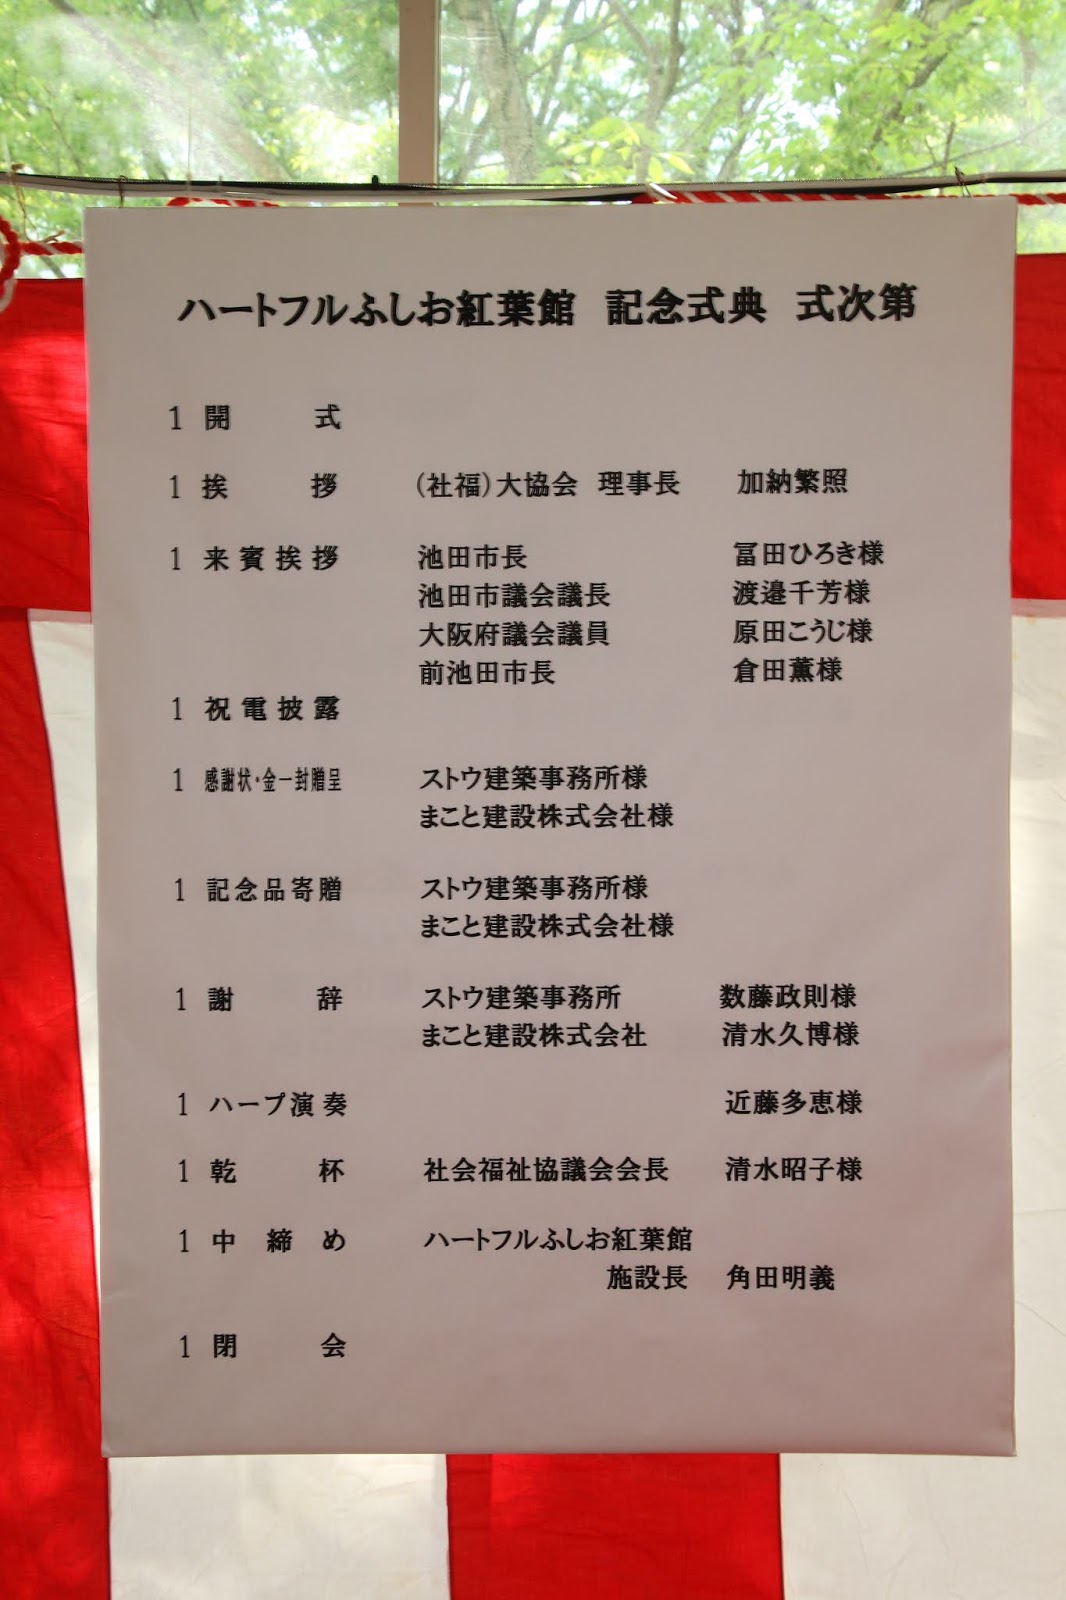 ハートフルふしお紅葉館 記念式典 式次第
1 開 式
1 挨 拶 (社福)大協会 理事長 加納繁照
1 来賓挨拶 池田市長 冨田ひろき様
池田市議会議長 渡邉千芳様
大阪府議会議員 原田こうじ様
前池田市長 倉田薫様
1 祝電披露
1 感謝状・金一封贈呈 ストウ建築事務所様
まこと建設株式会社様
1 記念品寄贈 ストウ建築事務所様
まこと建設株式会社様
1 謝 辞 ストウ建築事務所 数藤政則様
まこと建設株式会社 清水久博様
1 ハープ演奏 近藤多恵様
1 乾 杯 社会福祉協議会会長 清水昭子様
1 中 締 め ハートフルふしお紅葉館
施設長 角田明義
1 閉 会